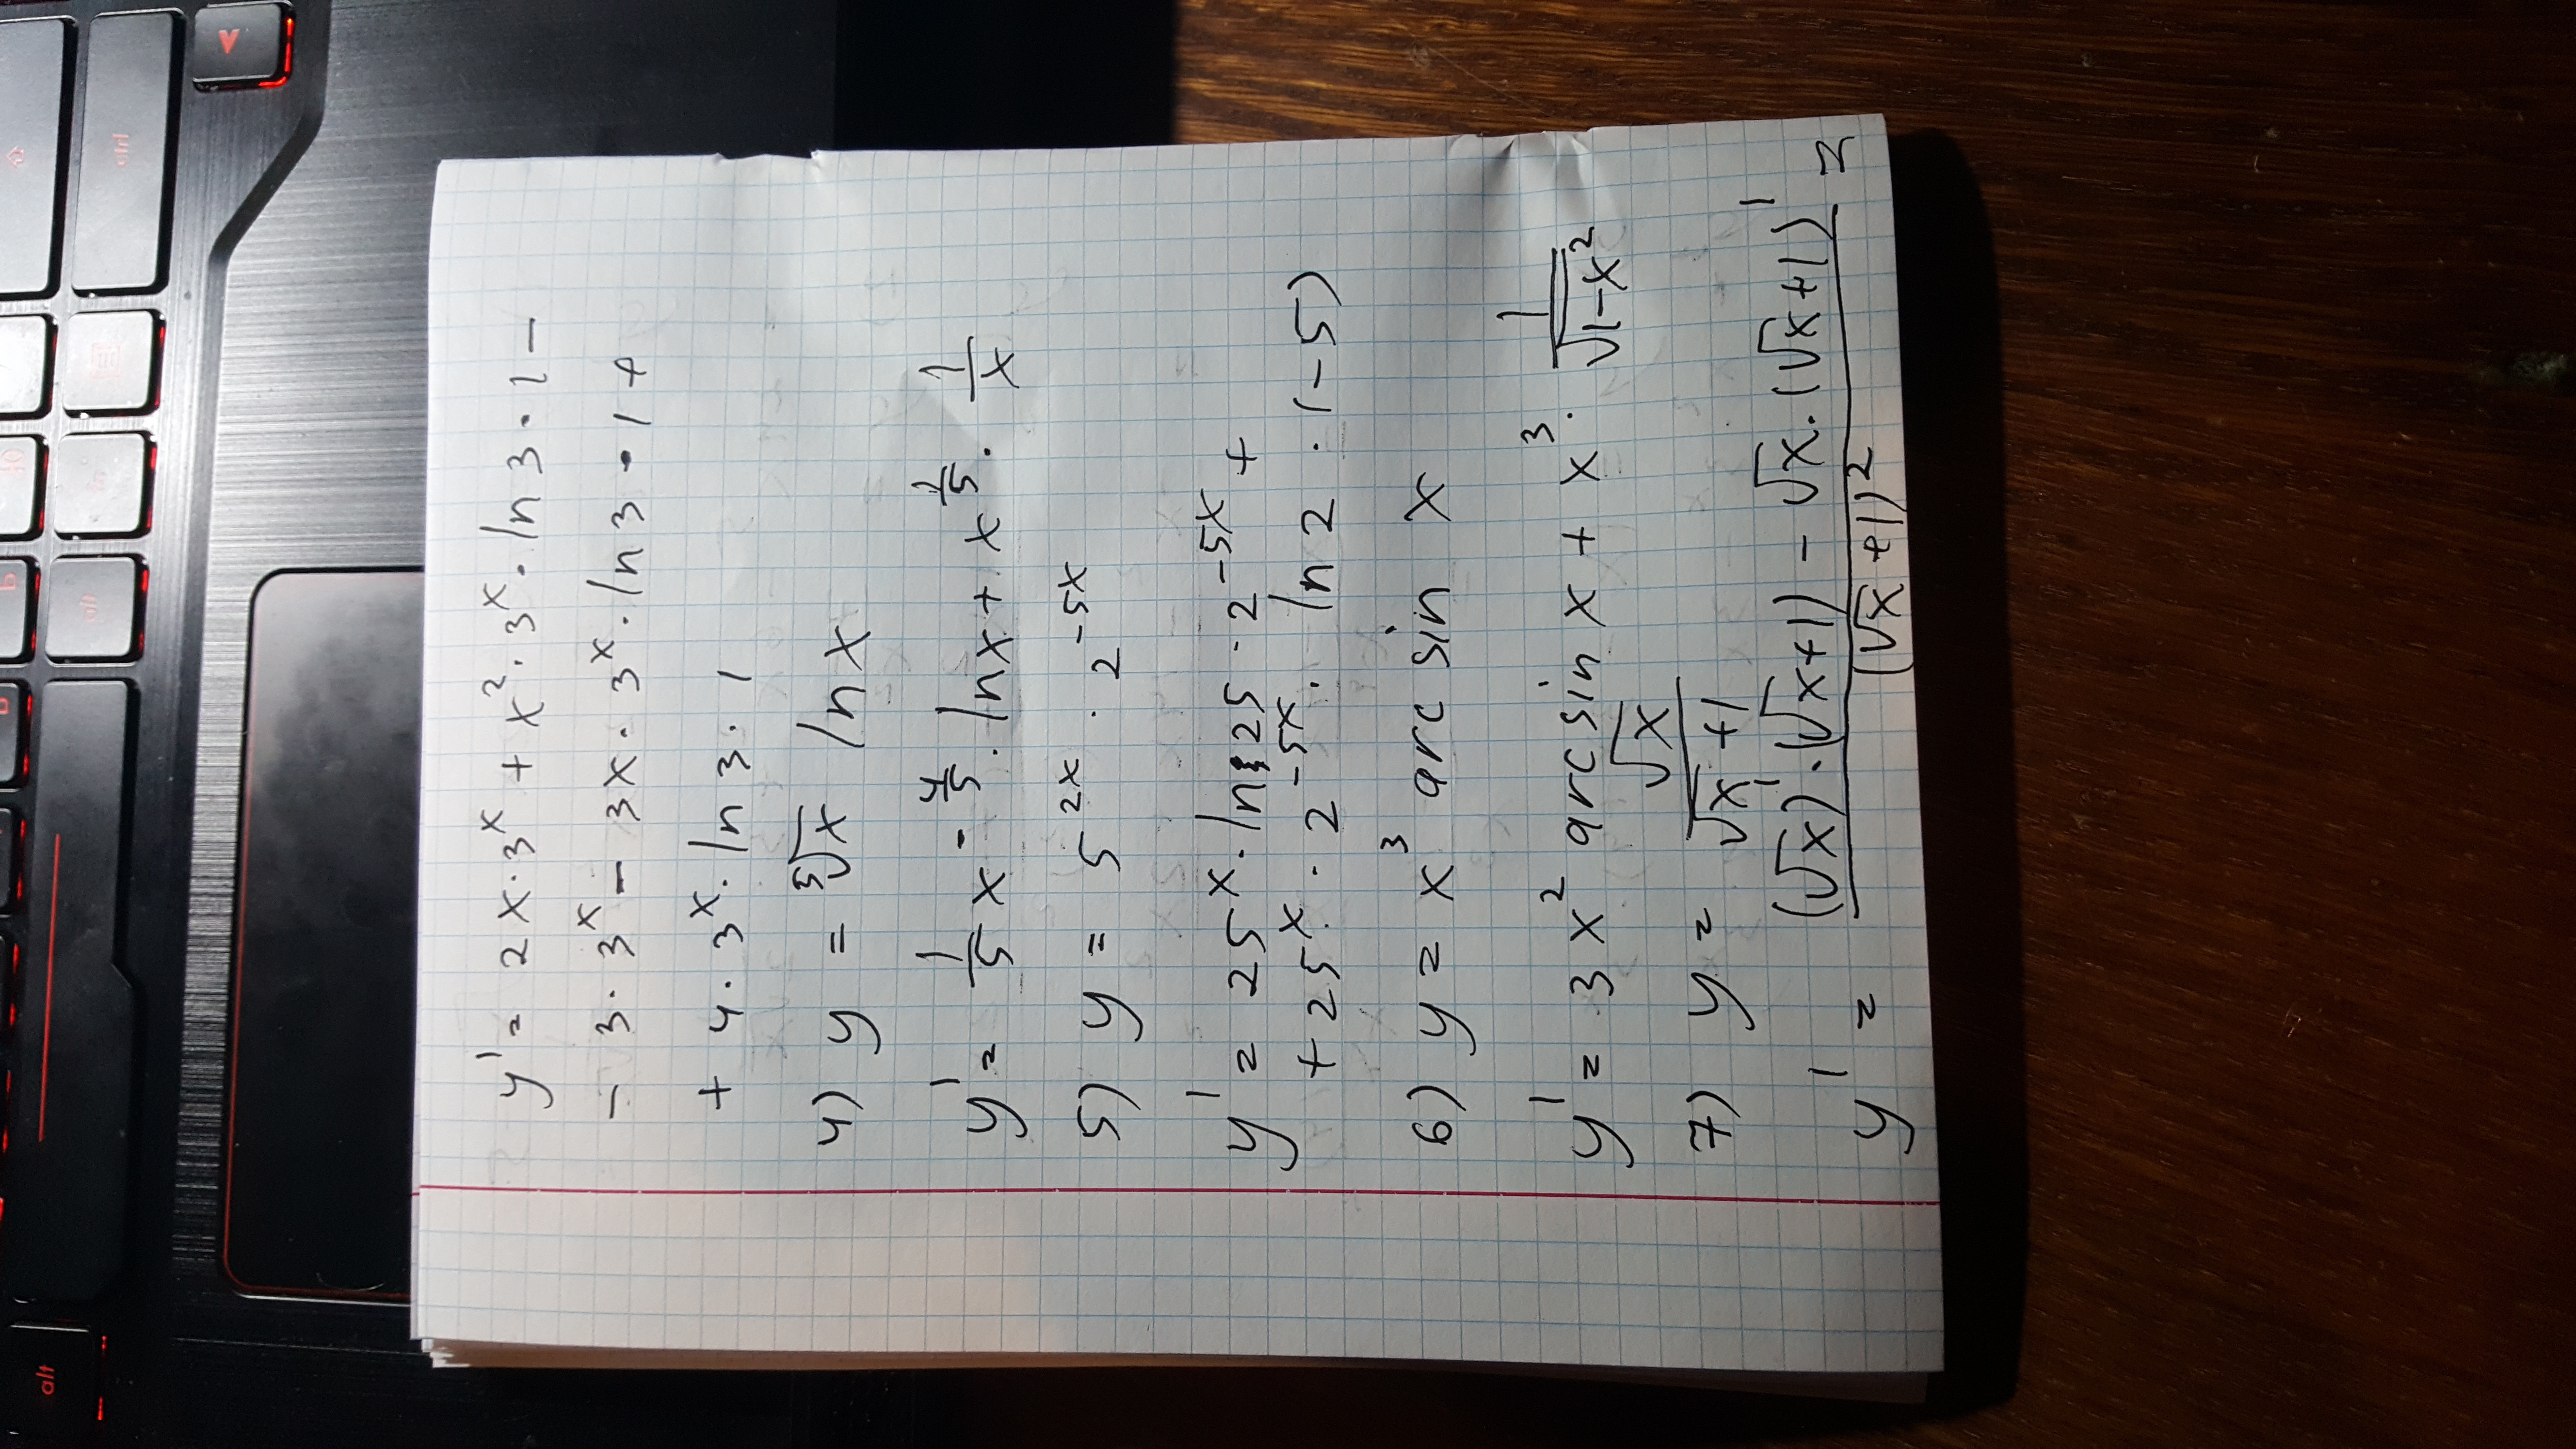 y' = 2x · 3^x + x^2 · 3^x · ln 3 · 1 -
- 3 · 3^x - 3x · 3^x · ln 3 · 1 +
+ 4 · 3^x · ln 3 · 1
4) y = ⁵√x ln x
y' = 1/5 x^(-4/5) · ln x + x^(1/5) · 1/x
5) y = 5^(2x) · 2^(-5x)
y' = 25^x · ln 25 · 2^(-5x) +
+ 25^x · 2^(-5x) · ln 2 · (-5)
6) y = x^3 arc sin x
y' = 3x^2 arcsin x + x^3 · 1/√(1-x^2)
7) y = √x/(√x + 1)
y' = ((√x)' · (√x+1) - √x · (√x+1)')/(√x+1)^2 =
alt
ctrl
alt